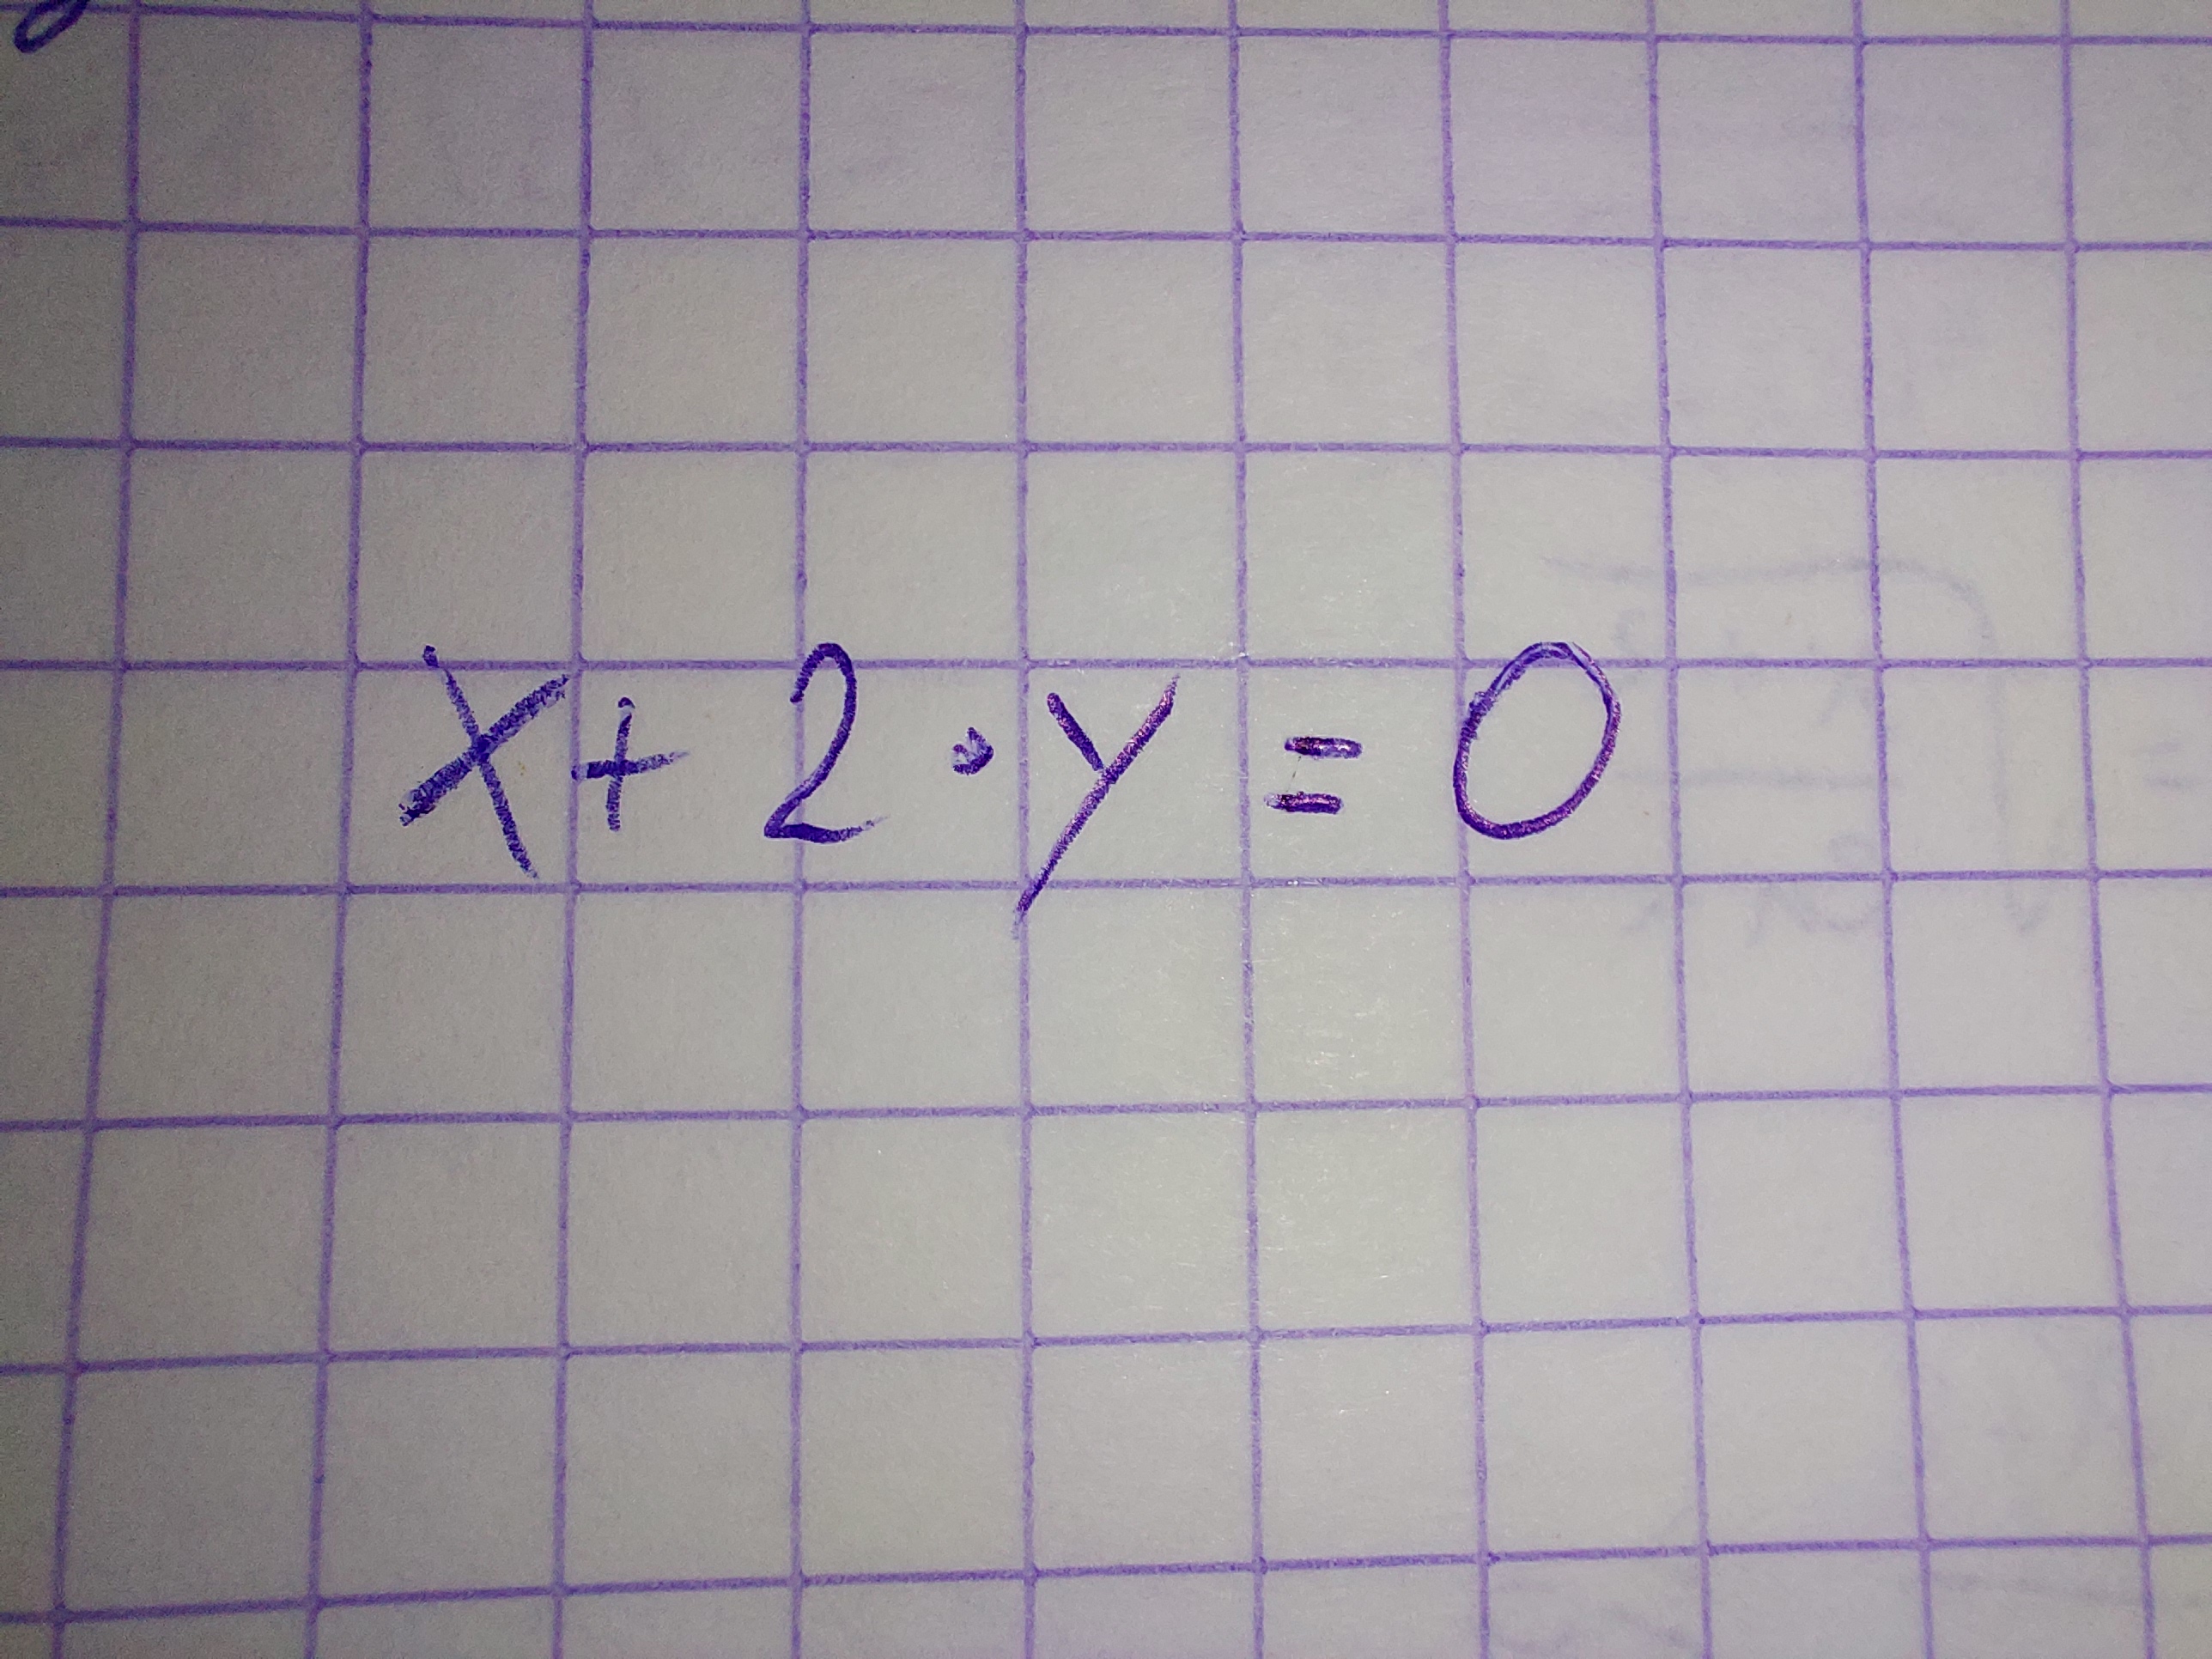 x + 2 · y = 0